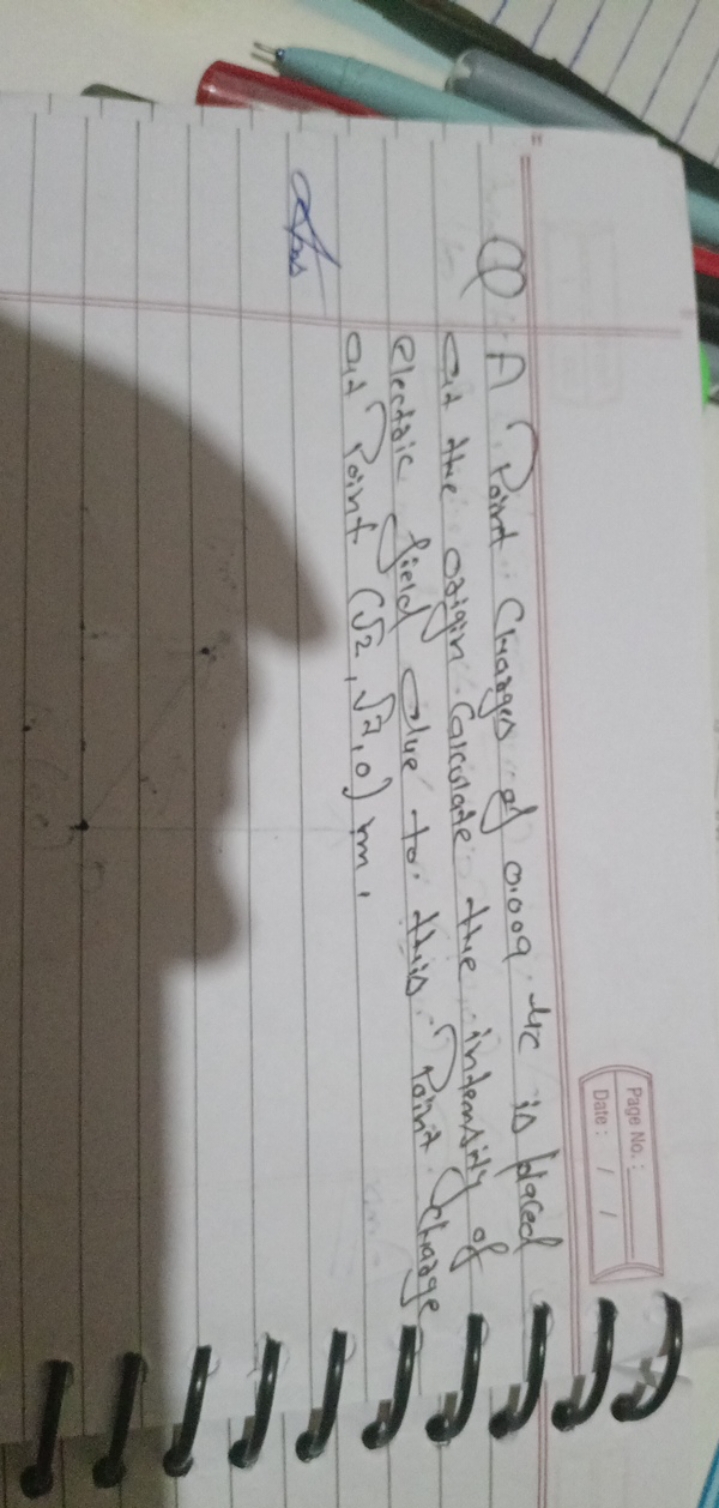 Page No.:
Date: / /
Q. A Point Charges of 0.009 μc is placed
at the origin Calculate the intensity of
electric field due to this Point charge
at Point (√2, √2, 0) m.
Ans